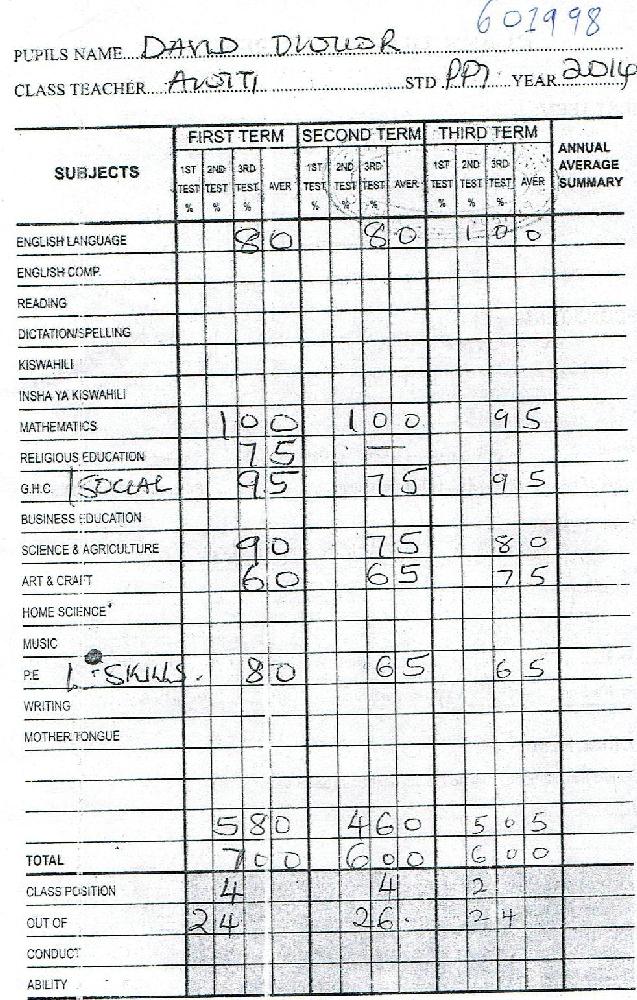 601998
PUPILS NAME DAVID
CLASS TEACHER AVOTTI STD PP1 YEAR 2014
SUBJECTS FIRST TERM SECOND TERM THIRD TERM ANNUAL AVERAGE SUMMARY
1ST TEST % 2ND TEST % 3RD TEST % AVER 1ST TEST % 2ND TEST % 3RD TEST % AVER 1ST TEST % 2ND TEST % 3RD TEST % AVER
ENGLISH LANGUAGE 80 80 100
ENGLISH COMP.
READING
DICTATION/SPELLING
KISWAHILI
INSHA YA KISWAHILI
MATHEMATICS 100 100 95
RELIGIOUS EDUCATION 75 —
G.H.C. / SOCIAL 95 75 95
BUSINESS EDUCATION
SCIENCE & AGRICULTURE 90 75 80
ART & CRAFT 60 65 75
HOME SCIENCE
MUSIC
P.E L-SKILLS. 80 65 65
WRITING
MOTHER TONGUE
580 460 505
TOTAL 700 600 600
CLASS POSITION 4 4 2
OUT OF 24 26. 24
CONDUCT
ABILITY